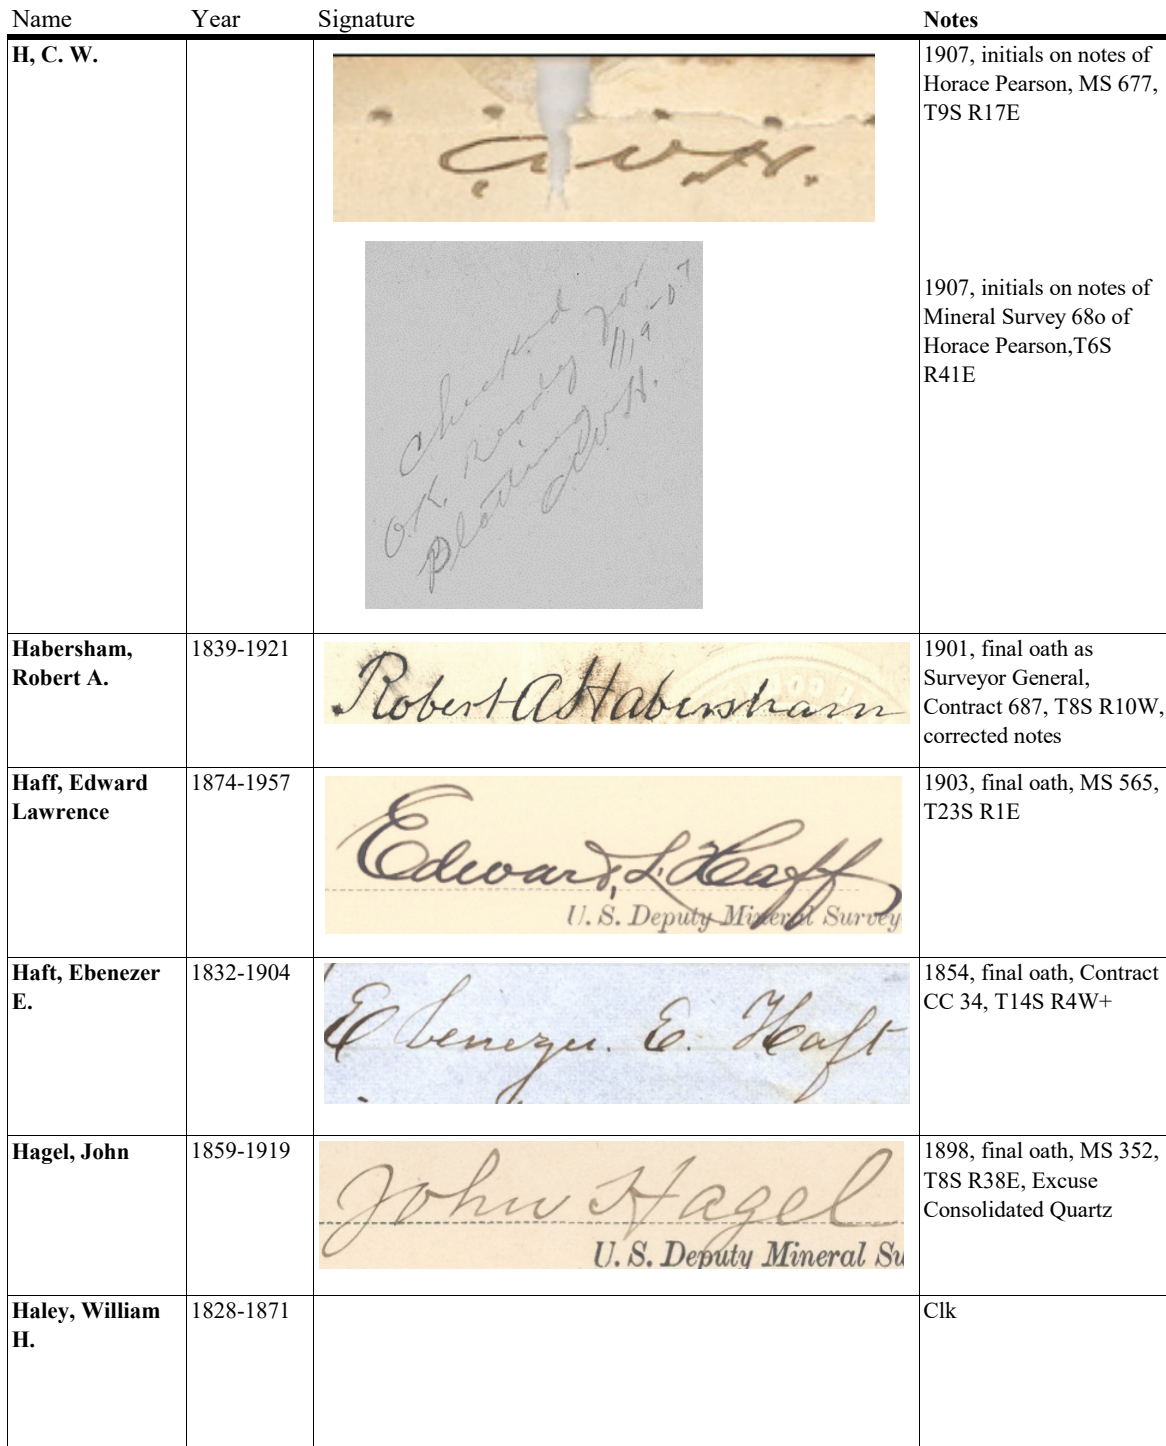 Name Year Signature Notes
H, C. W.
1907, initials on notes of
Horace Pearson, MS 677,
T9S R17E
C W H.
Checked
O.K. Ready for
Platting 11-9-07
C.W.H.
1907, initials on notes of
Mineral Survey 68o of
Horace Pearson,T6S
R41E
Habersham,
Robert A.
1839-1921
Robert A Habersham
1901, final oath as
Surveyor General,
Contract 687, T8S R10W,
corrected notes
Haff, Edward
Lawrence
1874-1957
Edward L. Haff
U. S. Deputy Mineral Survey
1903, final oath, MS 565,
T23S R1E
Haft, Ebenezer
E.
1832-1904
Ebenezer. E. Haft
1854, final oath, Contract
CC 34, T14S R4W+
Hagel, John
1859-1919
John Hagel
U. S. Deputy Mineral Su
1898, final oath, MS 352,
T8S R38E, Excuse
Consolidated Quartz
Haley, William
H.
1828-1871
Clk